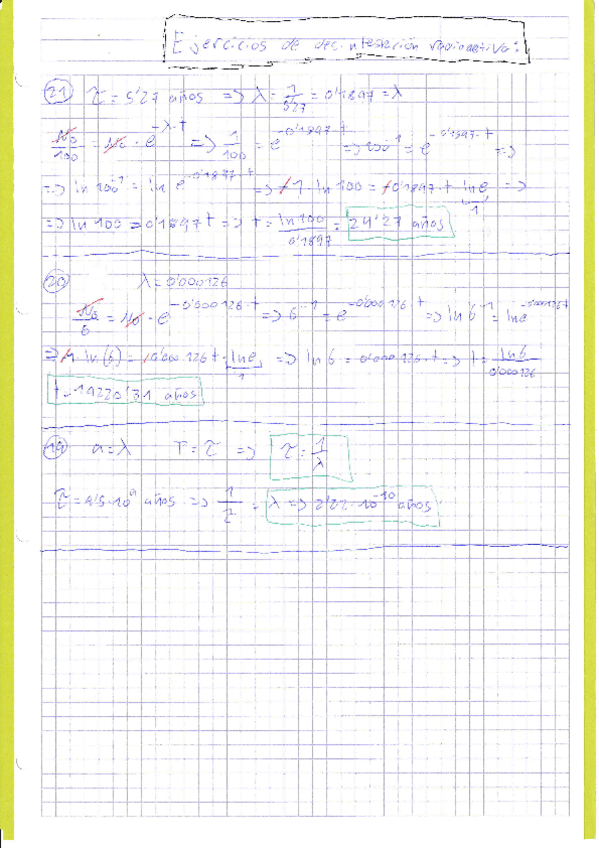 Ejercicios de desintegración radioactiva:
21 τ = 5'27 años => λ = 1/5'27 = 0'1897 = λ
N₀/100 = N₀ · e^(-λ·t) => 1/100 = e^(-0'1897·t) => 100^(-1) = e^(-0'1897·t) =>
=> ln 100^(-1) = ln e^(-0'1897·t) => -1 · ln 100 = -0'1897 · t · ln e => 1
=> ln 100 = 0'1897 t => t = ln 100/0'1897 = 24'27 años
20 λ = 0'000126
N₀/6 = N₀ · e^(-0'000126·t) => 6^(-1) = e^(-0'000126·t) => ln 6^(-1) = ln e^(-0'000126t)
=> -1 ln(6) = -0'000126 t · ln e => ln 6 = 0'000126 · t => t = ln 6/0'000126 1
t = 14220'31 años
19 a = λ T = τ => τ = 1/λ
τ = 4'5·10⁹ años => 1/τ = λ => 2'22·10^(-10) años